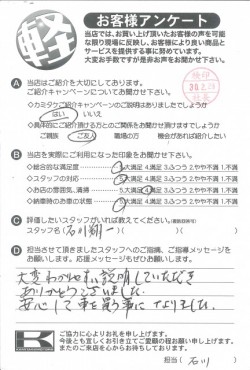 軽
お客様アンケート
当店では、お買い上げ頂いたお客様の声を可能
な限り現場に反映し、お客様により良い商品と
サービスを提供する事に努めています。
大変お手数ですが是非お声をお聞かせ下さい。
A 当店はご紹介を大切にしております。
ご紹介キャンペーンについてお聞かせ下さい。
◇カミタケご紹介キャンペーンのご説明はありましたでしょうか
はい いいえ
◇具体的にご紹介頂ける方とのご関係をお聞かせ頂けますでしょうか
ご親族 ご友人 職場の方 機会があれば紹介したい
B 当店を実際にご利用になった印象をお聞かせ下さい。
◇総合的な満足度 5大満足 4.満足 3.ふつう 2.やや不満 1.不満
◇スタッフの対応 5大満足 4.満足 3.ふつう 2.やや不満 1.不満
◇お店の雰囲気、清掃 5大満足 4.満足 3.ふつう 2.やや不満 1.不満
◇納車時のお車の状態 5大満足 4.満足 3.ふつう 2.やや不満 1.不満
C 評価したいスタッフがいれば教えてください。
スタッフ名( 石川 )( )( )
D 担当させて頂きましたスタッフへのご指摘、ご指導メッセージを
お願いします。応援メッセージもぜひお願いします!
大変わかりやすい説明していただき
ありがとうございました。
安心して車を買う事になりました。
K
ご協力に心よりお礼を申し上げます。
今後とも宜しくお引き立てご愛顧の程お願い申し上げます。
またのご来店を心からお待ちしております。
担当( 石川 )